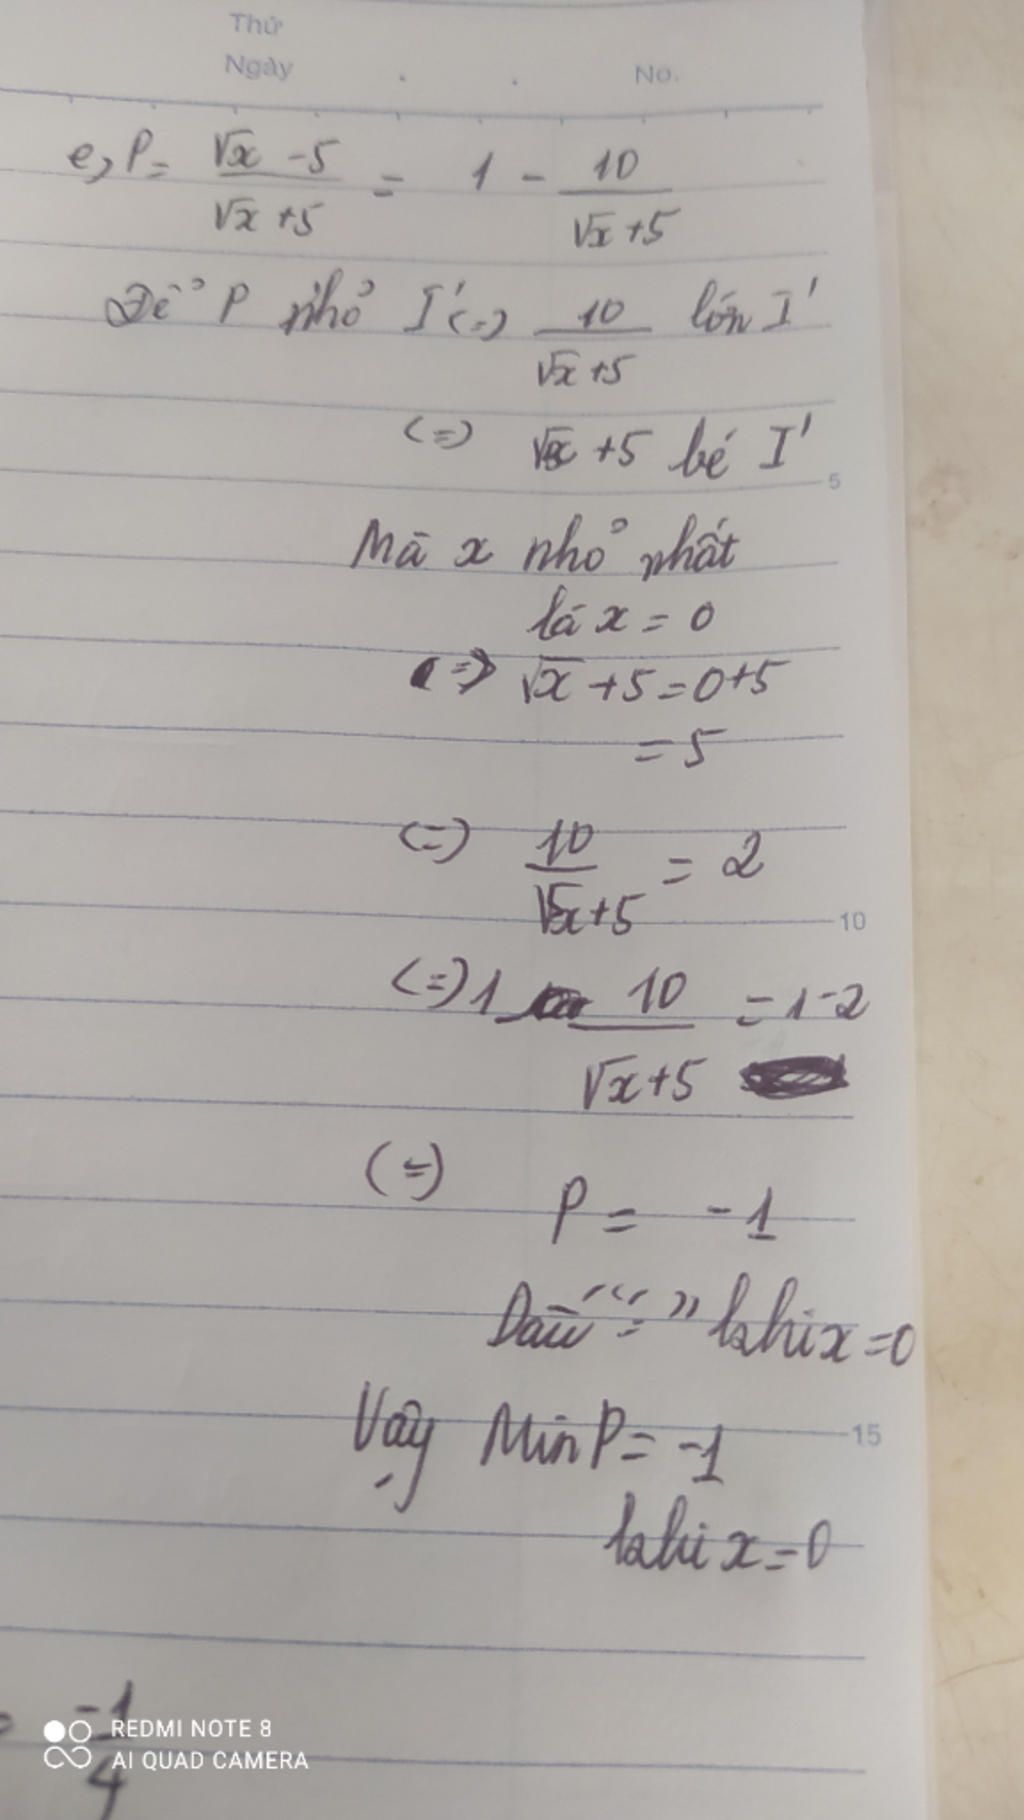 Thứ
Ngày . . No.
e, P = \frac{√x - 5}{√x + 5} = 1 - \frac{10}{√x + 5}
Để P nhỏ I' (=) \frac{10}{√x + 5} lớn I'
(=) √x + 5 bé I'
5
Mà x nhỏ nhất
là x = 0
(=) √x + 5 = 0 + 5
= 5
(=) \frac{10}{√x + 5} = 2
10
(=) 1 - \frac{10}{√x + 5} = 1 - 2
(=) P = -1
Dấu "=" khi x = 0
Vậy Min P = -1
15
khi x = 0
\frac{-1}{4}
REDMI NOTE 8
AI QUAD CAMERA